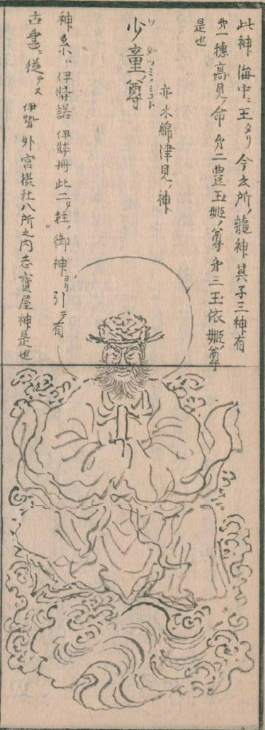 此神海中ノ王タリ今云所龍神其子三神有
第一穂高見ノ命第二豊玉姫ノ尊第三玉依姫ノ尊
是也
亦木綿津見ノ神
少童ノ尊
神系ハ伊弉諾伊弉冊此二タ柱ノ御神ヨリ引テ有
古書ニ従テス伊勢外宮摂社八所之内志寶屋神是也